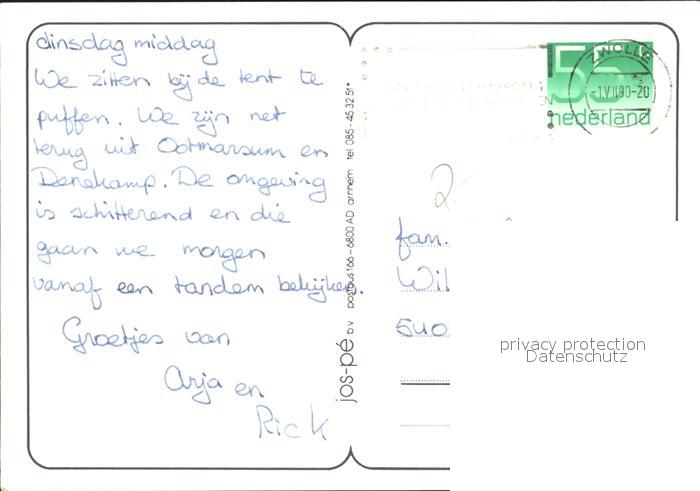 dinsdag middag
We zitten bij de tent te
puffen. We zijn net
terug uit Ootmarsum en
Denekamp. De omgeving
is schitterend en die
gaan we morgen
vanaf een tandem bekijken.
Groetjes van
Arja en
Rick
jos-pé b.v. postbus 166 - 6800 AD arnhem tel 085-453251*
ZWOLLE
55
-1.VII.80-20
nederland
fam.
Wil
540
privacy protection
Datenschutz